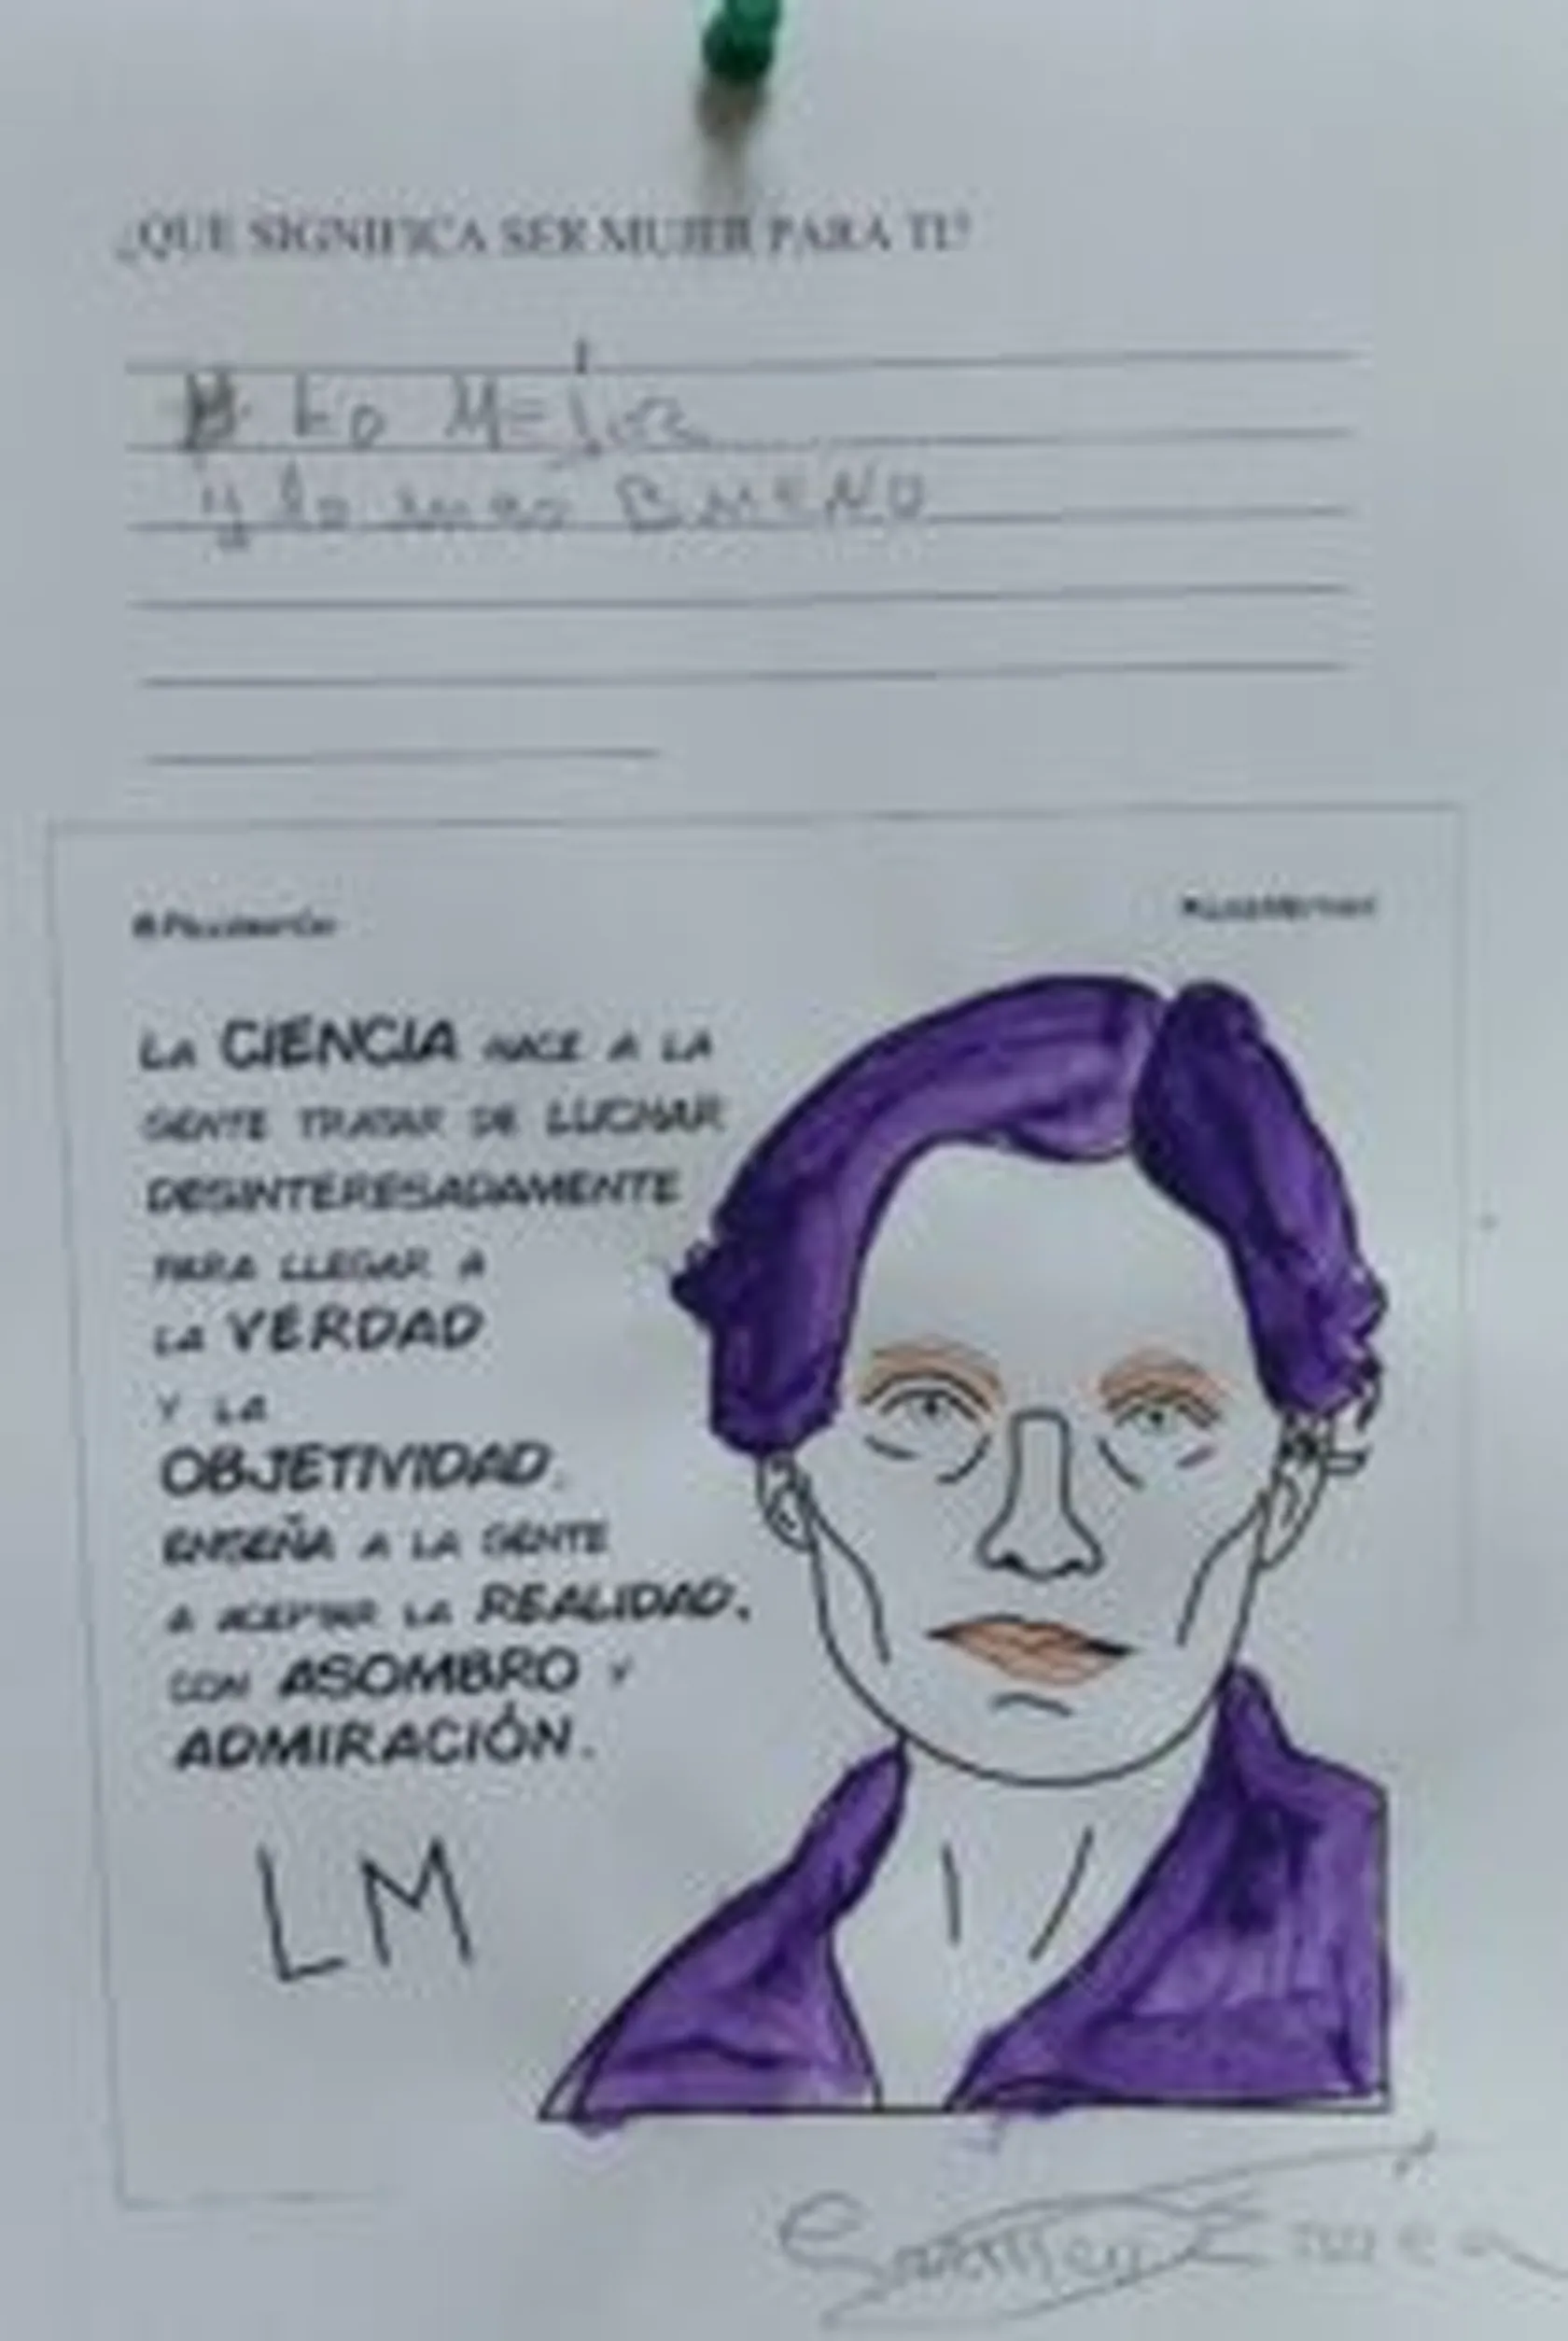 ¿QUE SIGNIFICA SER MUJER PARA TI?
Lo MEJOR
y lo mas BUENO
LA CIENCIA HACE A LA
GENTE TRATAR DE LUCHAR
DESINTERESADAMENTE
PARA LLEGAR A
LA VERDAD
Y LA
OBJETIVIDAD.
ENSEÑA A LA GENTE
A ACEPTAR LA REALIDAD,
CON ASOMBRO Y
ADMIRACIÓN.
LM